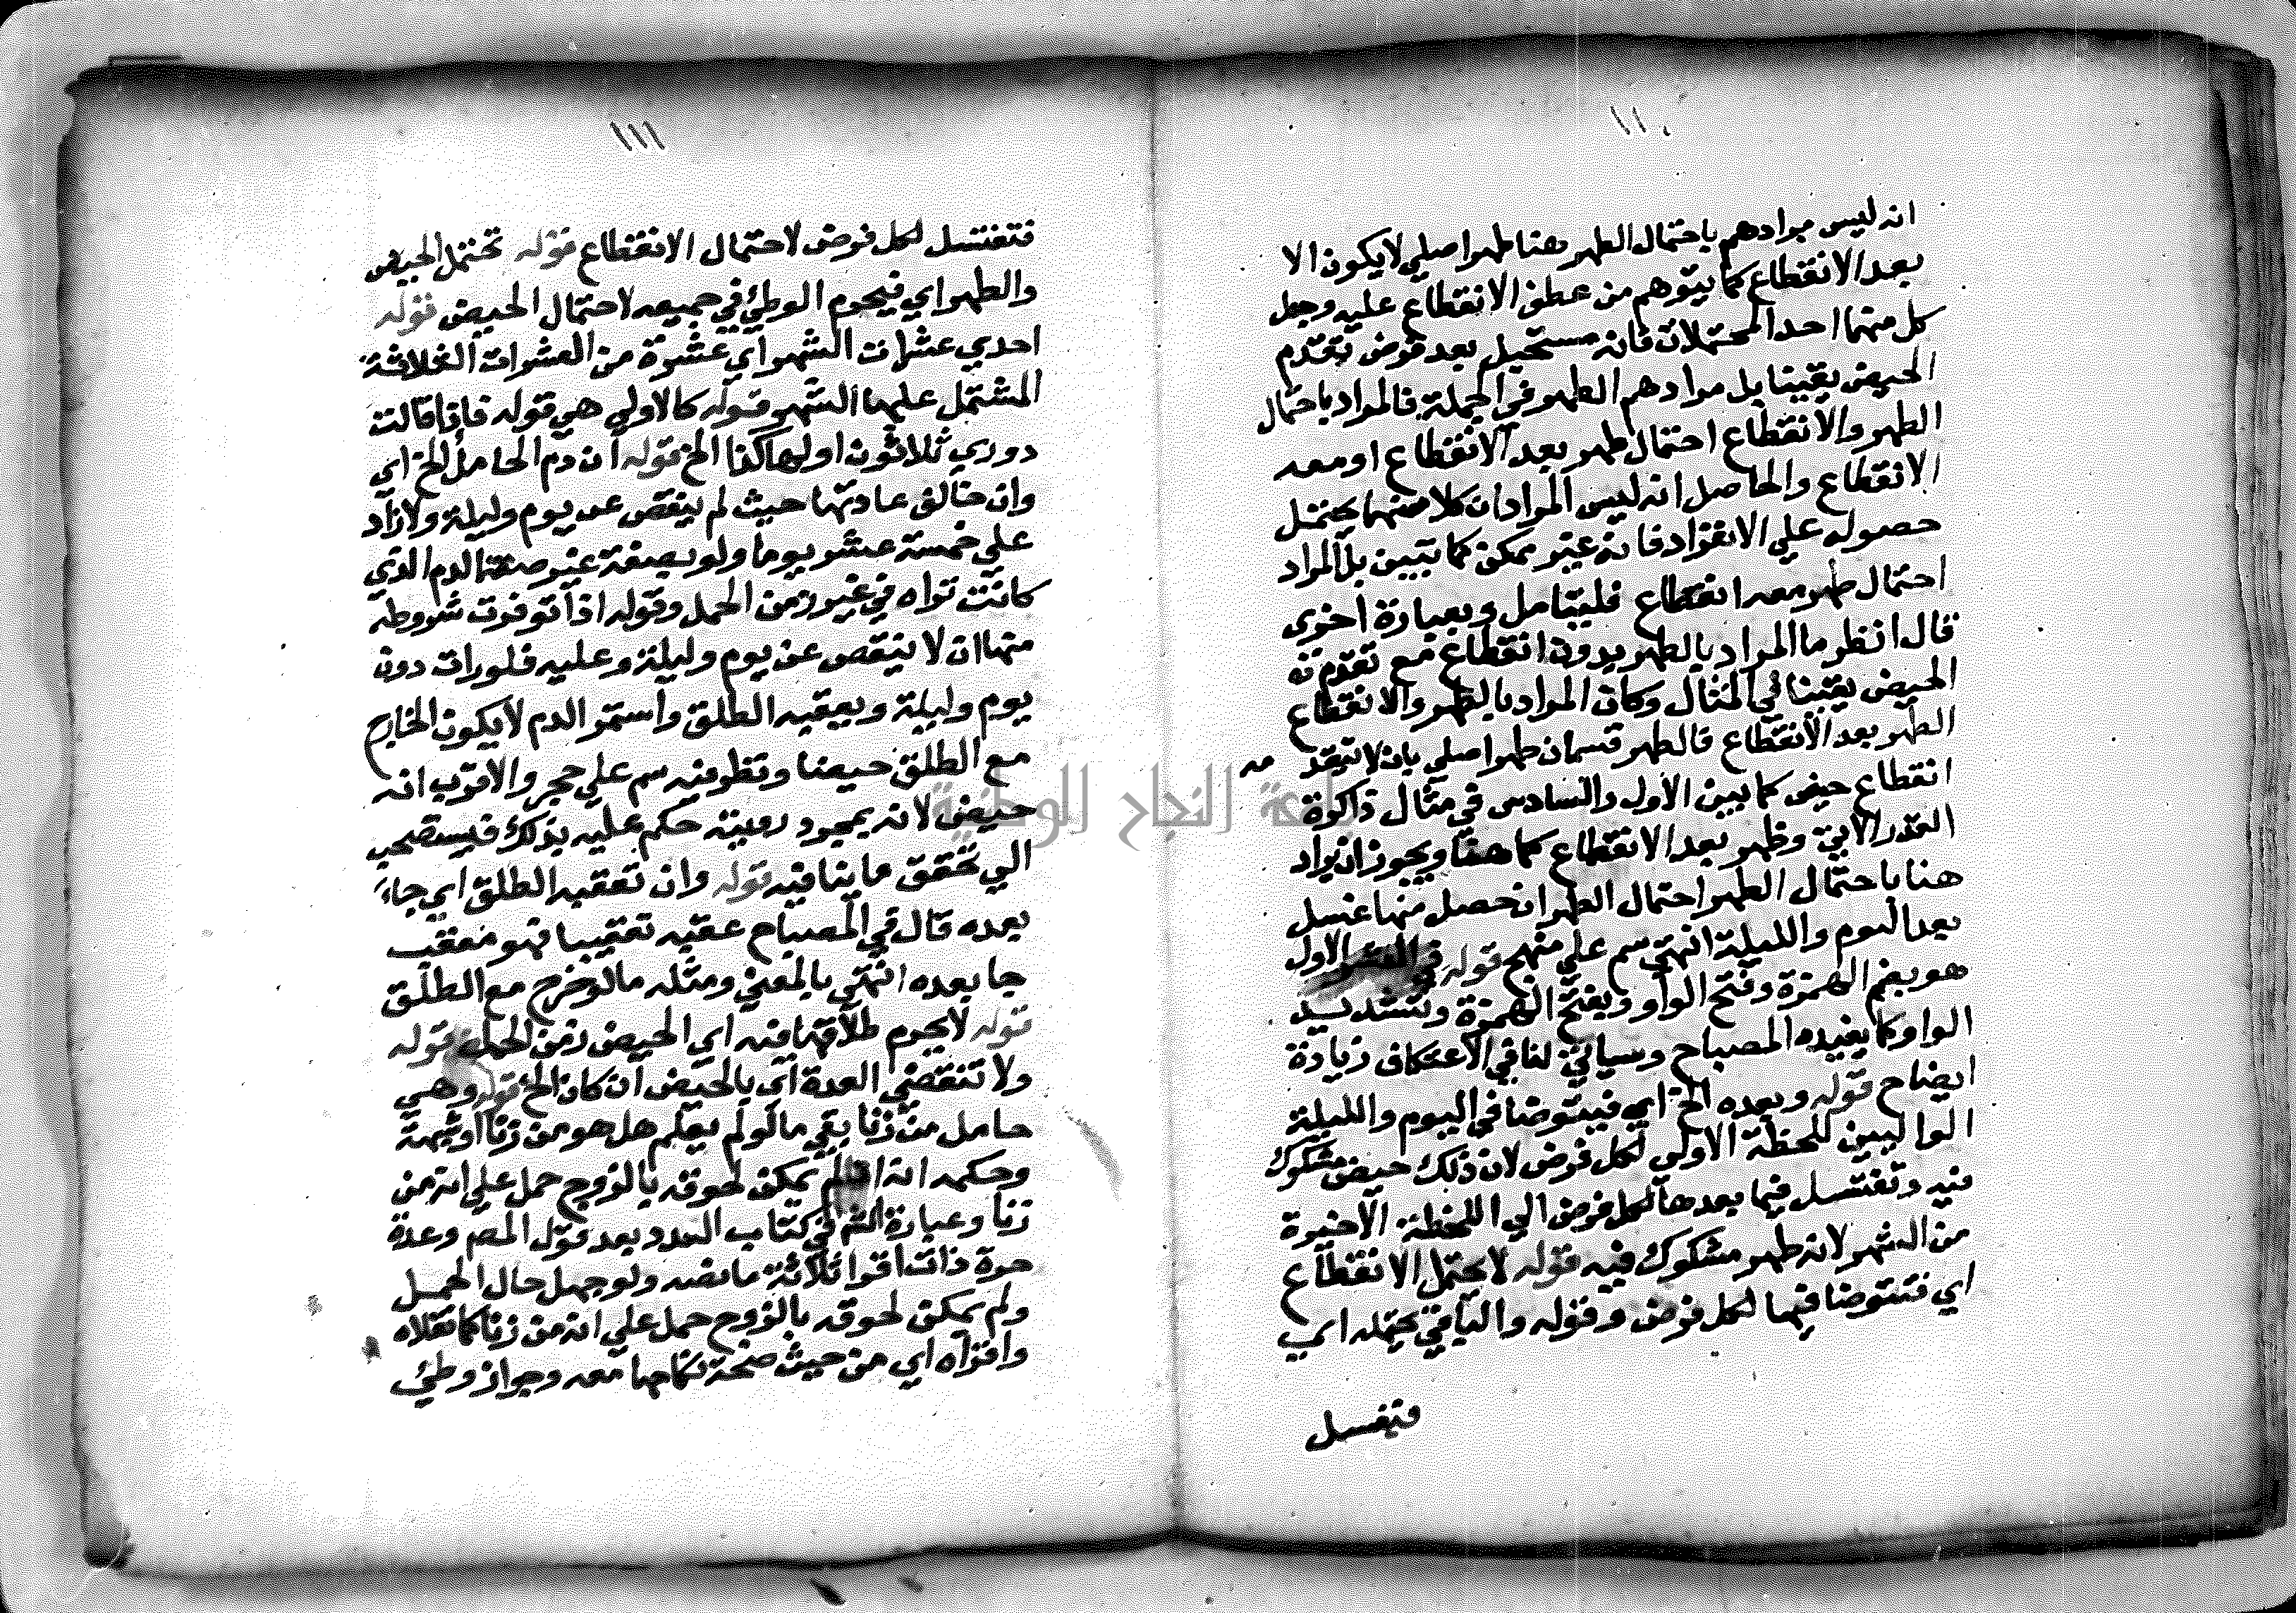 ١١٠
انه ليس مرادهم باحتمال الطهر هنا طهر اصلي لا يكون الا
بعد الانقطاع كما يتوهم من عطف الانقطاع عليه وجعل
كل منهما احد المحتملات فانه مستحيل بعد فرض تقدم
الحيض يقينا بل مرادهم الطهر في الجملة فالمراد باحتمال
الطهر والانقطاع احتمال طهر بعد الانقطاع او معه
الانقطاع والحاصل انه ليس المراد ان كلا منهما يحتمل
حصوله علي الانفراد فانه غير ممكن كما تبين بل المراد
احتمال طهر معه انقطاع فليتامل وبعبارة اخري
قال انظر ما المراد بالطهر بدون انقطاع مع تقدم
الحيض يقينا في المثال وكان المراد بالطهر والانقطاع
الطهر بعد الانقطاع فالطهر قسمان طهر اصلي بان لا يتقدمه
انقطاع حيض كما بين الاول والسادس في مثال ذاكرة
القدر الاتي وطهر بعد الانقطاع كما هنا ويجوز ان يراد
هنا باحتمال الطهر احتمال الطهر ان حصل منها غسل
بعد اليوم والليلة انتهي سم علي منهج قوله في العشر الاول
هو بضم الهمزة وفتح الواو وبفتح الهمزة وتشديد
الواو كما يفيده المصباح وسياتي لنا في الاعتكاف زيادة
ايضاح قوله وبعده الخ اي فيتوضا في اليوم والليلة
الواليين للحظة الاولي لكل فرض لان ذلك حيض مشكوك
فيه وتغتسل فيما بعدها لكل فرض الي اللحظة الاخيرة
من الشهر لانه طهر مشكوك فيه قوله لا يحتمل الانقطاع
اي فتتوضا فيها لكل فرض وقوله والباقي يحتمله اي
فتغسل
١١١
فتغتسل لكل فرض لاحتمال الانقطاع قوله تحتمل الحيض
والطهر اي فيحرم الوطئ في جميعه لاحتمال الحيض قوله
احدي عشرات الشهر اي عشرة من العشرات الثلاثة
المشتمل عليها الشهر قوله كالاولي هي قوله فاذا قالت
دوري ثلاثون اولها كذا الخ قوله ان دم الحامل الخ اي
وان خالف عادتها حيث لم ينقص عن يوم وليلة ولا زاد
علي خمسة عشر يوما ولو بصفة غير صفة الدم الذي
كانت تراه في غير زمن الحمل وقوله اذا توفرت شروطه
منها ان لا ينقص عن يوم وليلة وعليه فلو رات دون
يوم وليلة وبعقبه الطلق واستمر الدم لا يكون الخارج
مع الطلق حيضا ونظر فيه سم علي حجر والاقرب انه
حيض لانه بمجرد رويته حكم عليه بذلك فيستصحب
الي تحقق ما ينافيه قوله وان تعقبه الطلق اي جاء
بعده قال في المصباح عقبه تعقيبا فهو معقب
جا بعده انتهي بالمعني ومثله مالو خرج مع الطلق
قوله لا يحرم طلاقها فيه اي الحيض زمن الحمل قوله
ولا تنقضي العدة اي بالحيض ان كان الخ قوله وهي
حامل من زنا بقي ما لو لم يعلم هل هو من زنا او شبهة
وحكمه انه ان لم يمكن لحوقه بالزوج حمل علي انه من
زنا وعبارة الشم في كتاب العدد بعد قول المص وعدة
حرة ذات اقرا ثلاثة ما نصه ولو جهل حال الحمل
ولم يمكن لحوقه بالزوج حمل علي انه من زنا كما نقلاه
واقراه اي من حيث صحة نكاحها معه وجواز وطئ
جامعة النجاح الوطنية